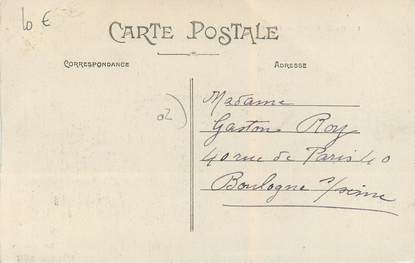 10 €
CARTE POSTALE
CORRESPONDANCE
ADRESSE
02
Madame
Gaston Roy
40 rue de Paris 40
Boulogne s/seine